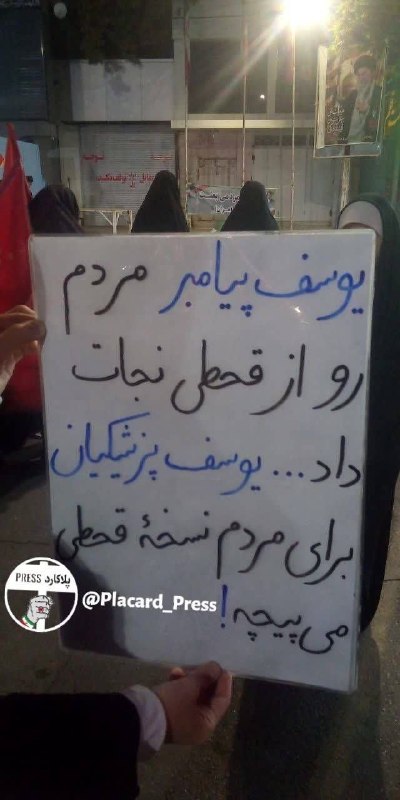 یوسف پیامبر مردم
رو از قحطی نجات
داد... یوسف پزشکیان
برای مردم نسخهٔ قحطی
می‌پیچه!
پلاکارد PRESS
@Placard_Press